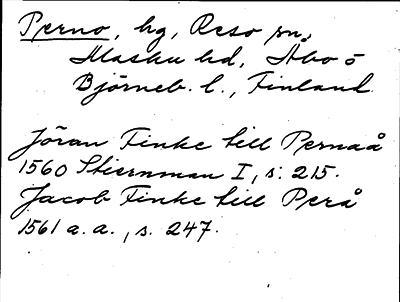 Perno, hg, Reso sn,
Masku hd, Åbo o
Björneb. l., Finland.
Jöran Finke till Pernaå
1560 Stiernman I, s. 215.
Jacob Finke till Perå
1561 a. a., s. 247.